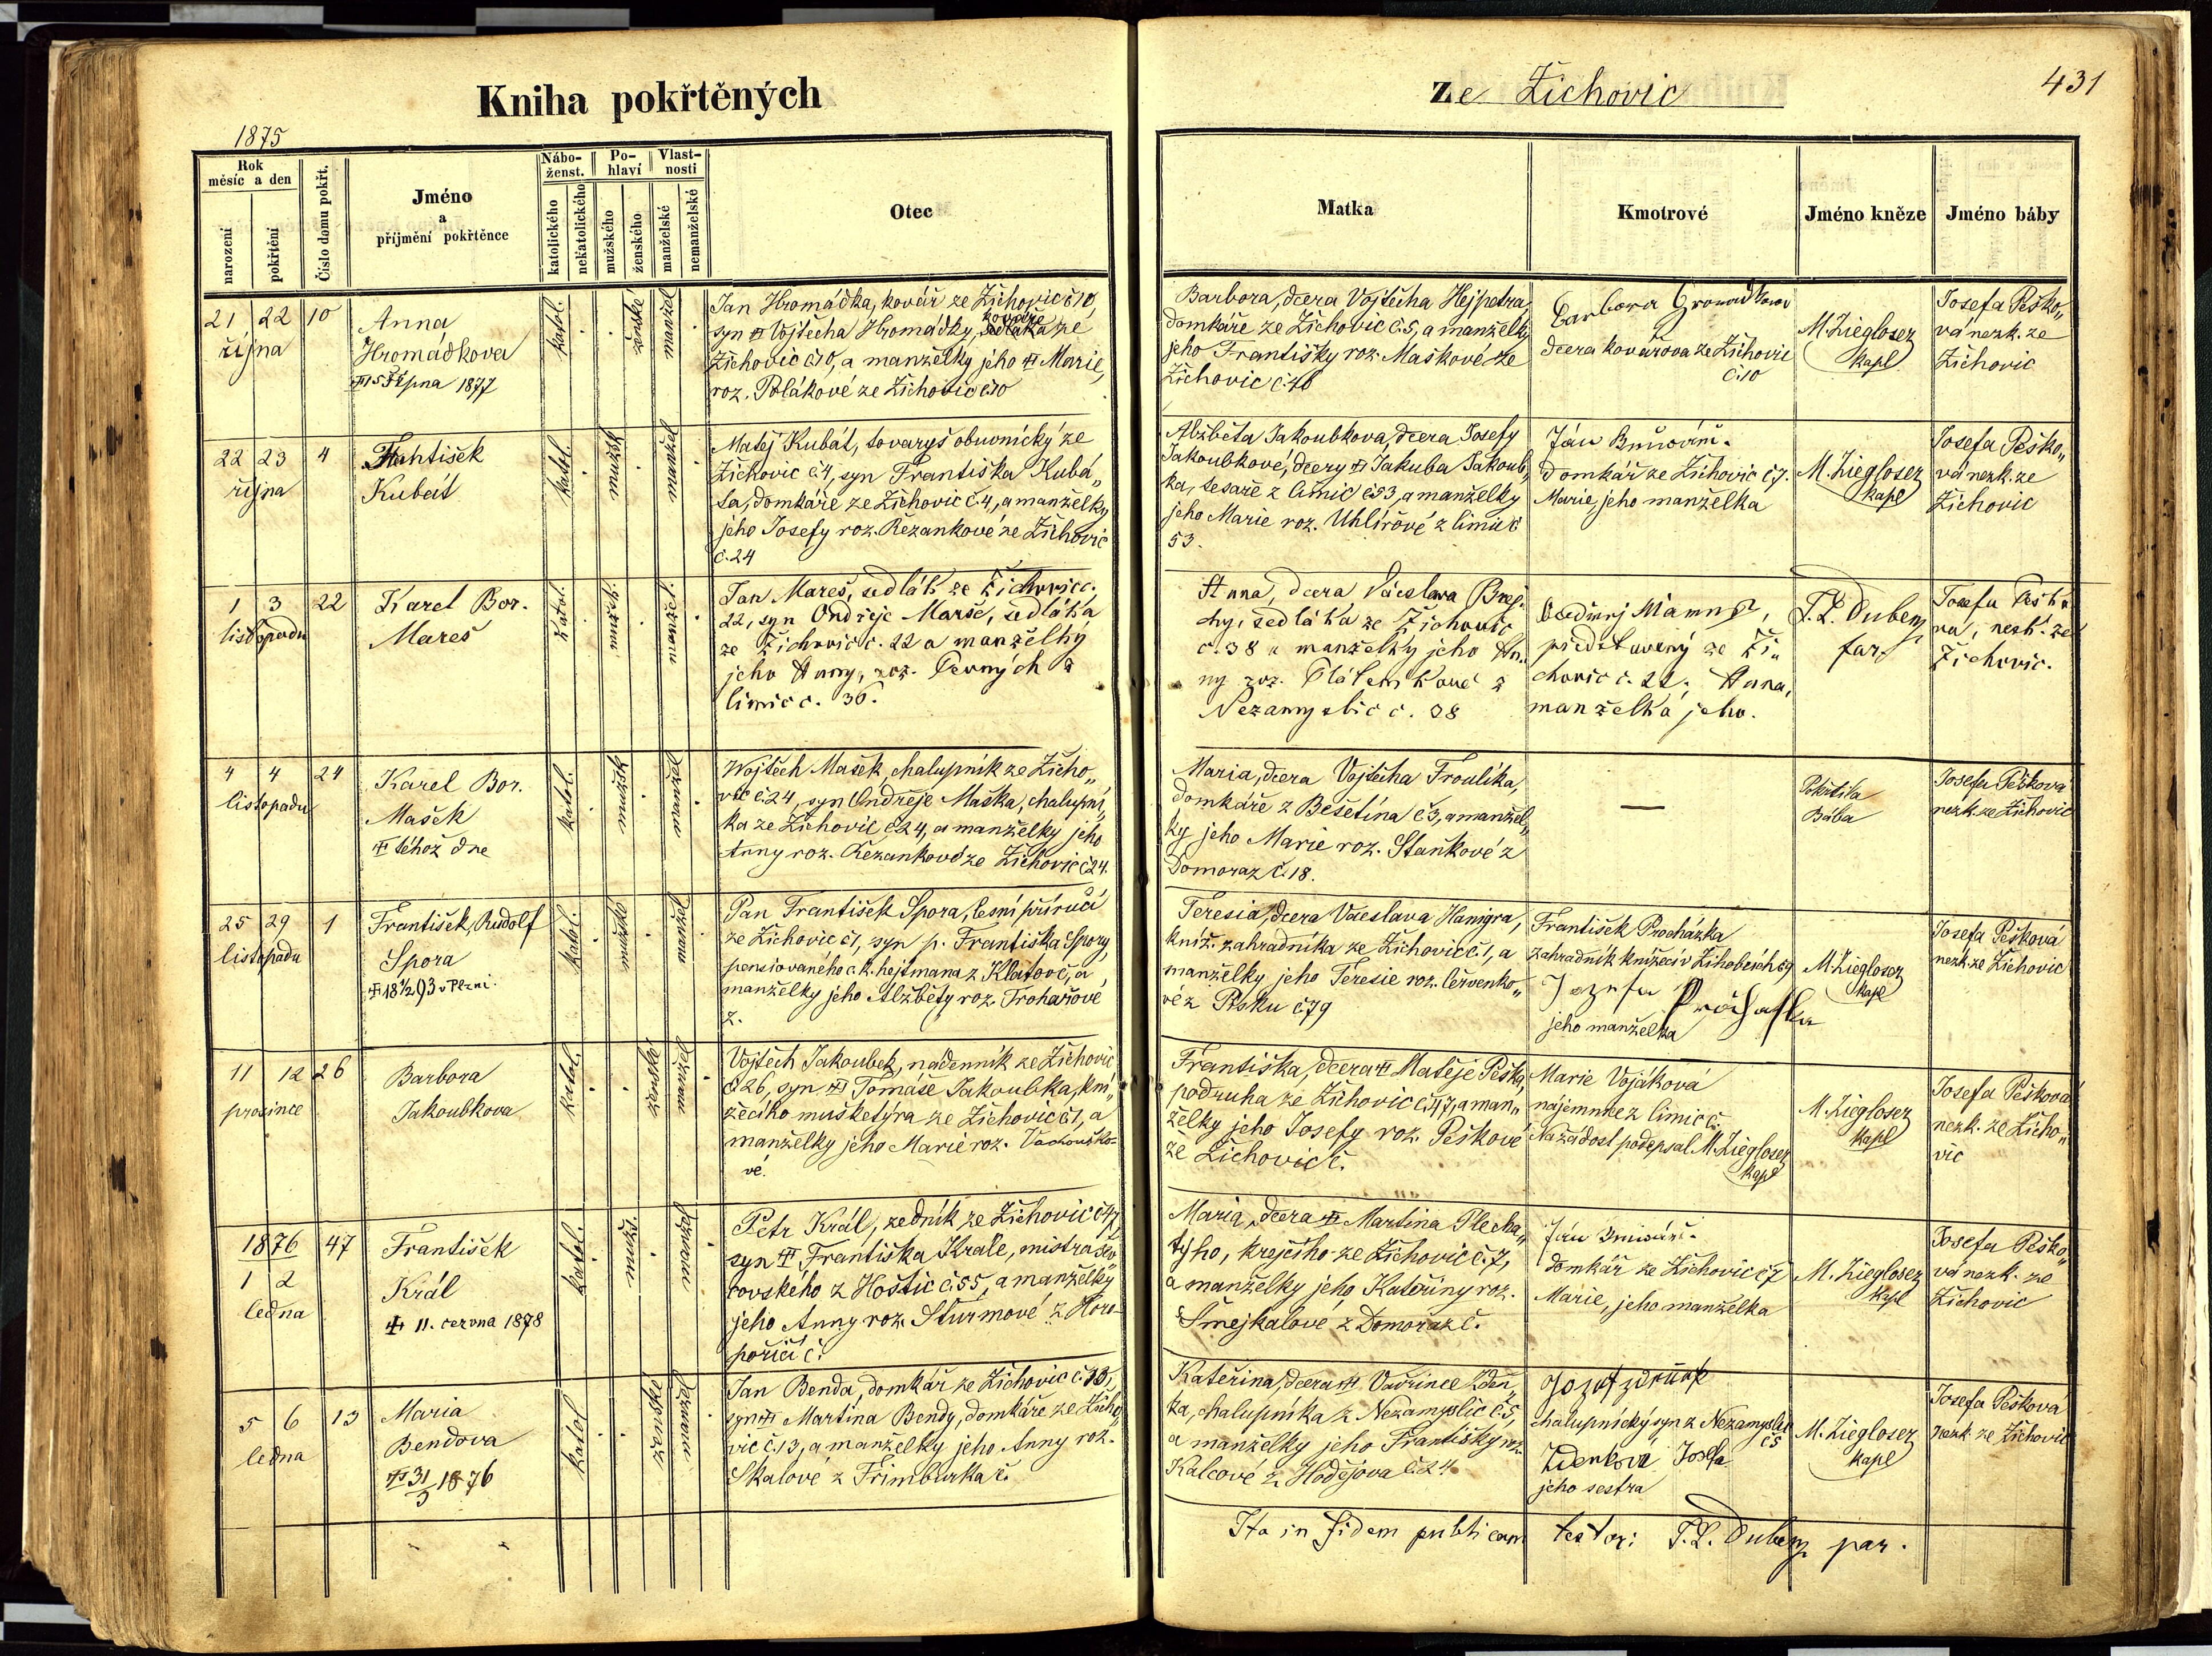 Kniha pokřtěných
ze Žichovic
431
1875
Rok
měsíc a den
narození
pokřtění
Číslo domu pokřt.
Jméno
a
příjmění pokřtěnce
Nábo-
ženst.
katolického
nekatolického
Po-
hlaví
mužského
ženského
Vlast-
nosti
manželské
nemanželské
Otec
Matka
Kmotrové
Jméno kněze
Jméno báby
21 22 10
října
Anna
Hromádkova
15 srpna 1877
katol.
ženské
manžel
Jan Hromádka, kovář ze Žichovic č 10,
kováře
syn Vojtěcha Hromádky, sedláka ze
Žichovic č10, a manželky jeho Marie,
roz. Polákové ze Žichovic č10
Barbora, dcera Vojtěcha Hejpetra,
domkáře ze Žichovic č.5, a manželky
jeho Františky roz. Maškové ze
Žichovic č.
Barbora
dcera kovářova ze Žichovic
č.10
M. Ziegloser
kapl
Josefa Peško„
vá nezk. ze
Žichovic
22 23 4
října
František
Kubát
katol.
mužsk
manžel
Matěj Kubát, tovaryš obuvnický ze
Žichovic č4, syn Františka Kubá„
ta, domkáře ze Žichovic č.4, a manželky
jeho Josefy roz. Řezankové ze Žichovic
č.24
Alžběta Jakoubkova, dcera Josefy
Jakoubkové, dcery Jakuba Jakoub„
ka, tesaře z Čimic č53, a manželky
jeho Marie roz. Uhlířové z Čimic č
53.
Ján
domkář ze Žichovic č7.
Marie, jeho manželka
M. Ziegloser
kapl
Josefa Peško„
vá nezk. ze
Žichovic
1 3 22
listopadu
Karel Bor.
Mareš
katol.
Jan Mareš, sedlák ze Žichovic č.
22, syn Ondřeje Marše, sedláka
ze Žichovic č. 22 a manželky
jeho Anny, roz. Pevných z
Čimic č. 36.
Anna, dcera Václava
chy, sedláka ze Žichovic
č. 38 a manželky jeho An„
ny roz. Plátenkové z
Nezamyslic č. 38
představený ze Ži„
chovic č. 22; Anna,
manželka jeho.
F. L. Dubený
far.
Josefa Peško
vá, nezk. ze
Žichovic.
4 4 24
listopadu
Karel Bor.
Mašek
téhož dne
katol.
mužsk
manžel
Wojtěch Mašek, chalupník ze Žicho„
vic č.24, syn Ondřeje Maška, chalupní„
ka ze Žichovic č24, a manželky jeho
Anny roz. Řezankové ze Žichovic č24.
Maria, dcera Vojtěcha Froulíka,
domkáře z Bešetína č3, a manžel„
ky jeho Marie roz. Staňkové z
Domoraz č.18.
—
Pokřtila
Bába
Josefa Pešková
nezk. ze Žichovic
25 29 1
listopadu
František, Rudolf
Spora
18 1/2 93 v Plzni.
katol.
mužské
manžel
Pan František Spora, lesní příručí
ze Žichovic č1, syn p. Františka Spory,
pensiovaného c. k. hejtmana z Klatov č, a
manželky jeho Alžběty roz. Trohařové
z.
Teresia, dcera Václava Hanigra,
kníž. zahradníka ze Žichovic č.1, a
manželky jeho Teresie roz. Červenko„
vé z Písku č79
František Procházka
zahradník knížecí v Žihobcích č.9
Jozefa Procháska
jeho manželka
M. Ziegloser
kapl
Josefa Pešková
nezk. ze Žichovic
11 12 26
prosince
Barbora
Jakoubkova
katol.
ženské
manžel
Vojtěch Jakoubek, nádenník ze Žichovic
č26, syn Tomáše Jakoubka, kní„
žecího mušketýra ze Žichovic č1, a
manželky jeho Marie roz. Vachouško-
vé.
Františka, dcera Matěje Peška,
podruha ze Žichovic č.47, a man„
želky jeho Josefy roz. Peškové
ze Žichovic č.
Marie Vojáková
nájemnice z Čimic č.
Na žádost podepsal M. Ziegloser
kapl
M. Ziegloser
kapl
Josefa Pešková
nezk. ze Žicho„
vic
1876 47
1 2
ledna
František
Král
11. června 1878
katol.
mužs.
manžel
Petr Král, zedník ze Žichovic č47,
syn Františka Krále, mistra šev
covského z Hoštic č.55, a manželky
jeho Anny roz. Šturmové z Horo-
poříčí č.
Maria, dcera Martina Plecha„
tyho, krejčího ze Žichovic č.7,
a manželky jeho Kateřiny roz.
Smejkalové z Domoraz č.
Ján
domkář ze Žichovic č7
Marie, jeho manželka
M. Ziegloser
kapl
Josefa Peško„
vá nezk. ze
Žichovic
5 6 13
ledna
Maria
Bendova
31/5 1876
katol
ženské
manžel
Jan Benda, domkář ze Žichovic č.13,
syn Martina Bendy, domkáře ze Žicho
vic č.13, a manželky jeho Anny roz.
Skalové z Frimburka č.
Kateřina, dcera Vavřince Zdeň„
ka, chalupníka z Nezamyslic č.5,
a manželky jeho Františky roz.
Kalcové z Hodějova č.24
Jozef
chalupnický syn z Nezamyslic
č5
Zdenková Josefa
jeho sestra
M. Ziegloser
kapl
Josefa Pešková
nezk. ze Žichovic
Ita in fidem publicam testor: F. L. Dubený par.